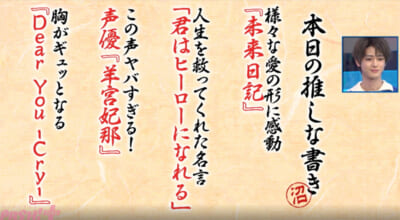 本日の推しな書き
沼
様々な愛の形に感動
『未来日記』
人生を救ってくれた名言
「君はヒーローになれる」
この声ヤバすぎる！
声優『羊宮妃那』
胸がギュッとなる
『Dear You -Cry-』